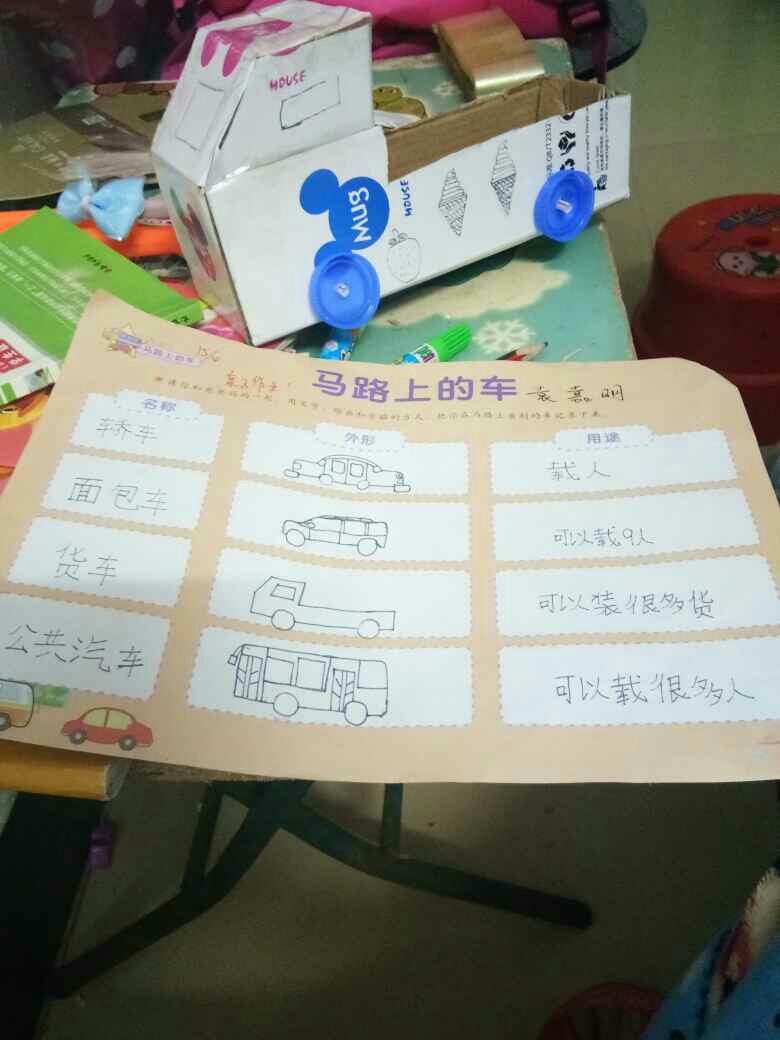 MOUSE
MOUSE
GB/T2332
马路上的车
亲子作业!
马路上的车 袁嘉明
名称 外形 用途
轿车 载人
面包车 可以载9人
货车 可以装很多货
公共汽车 可以载很多人